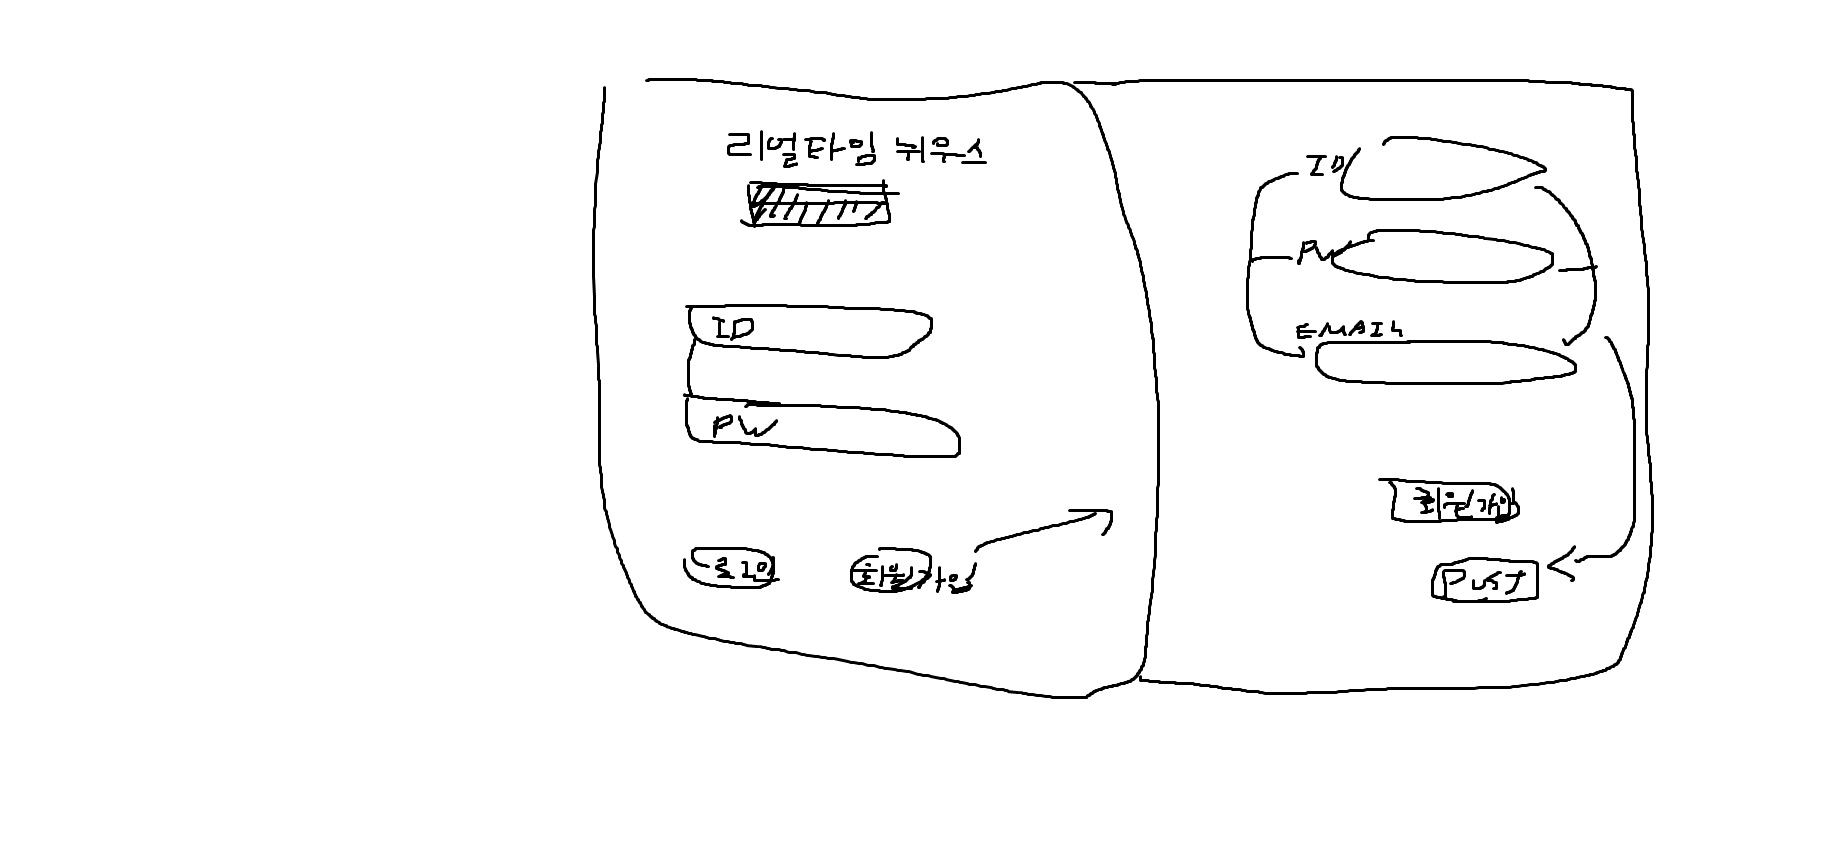 리얼타임 뉘우스
ID
PW
로그인
회원가입
ID
PW
EMAIL
회원가입